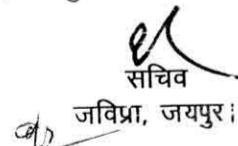 सचिव
जविप्रा, जयपुर।